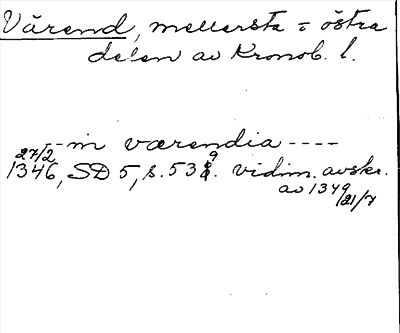 Värend, mellersta = östra
delen av Kronob. l.
---in værendia ----
27/2
1346, SD 5, s. 539. vidim. avskr.
av 1349 21/7